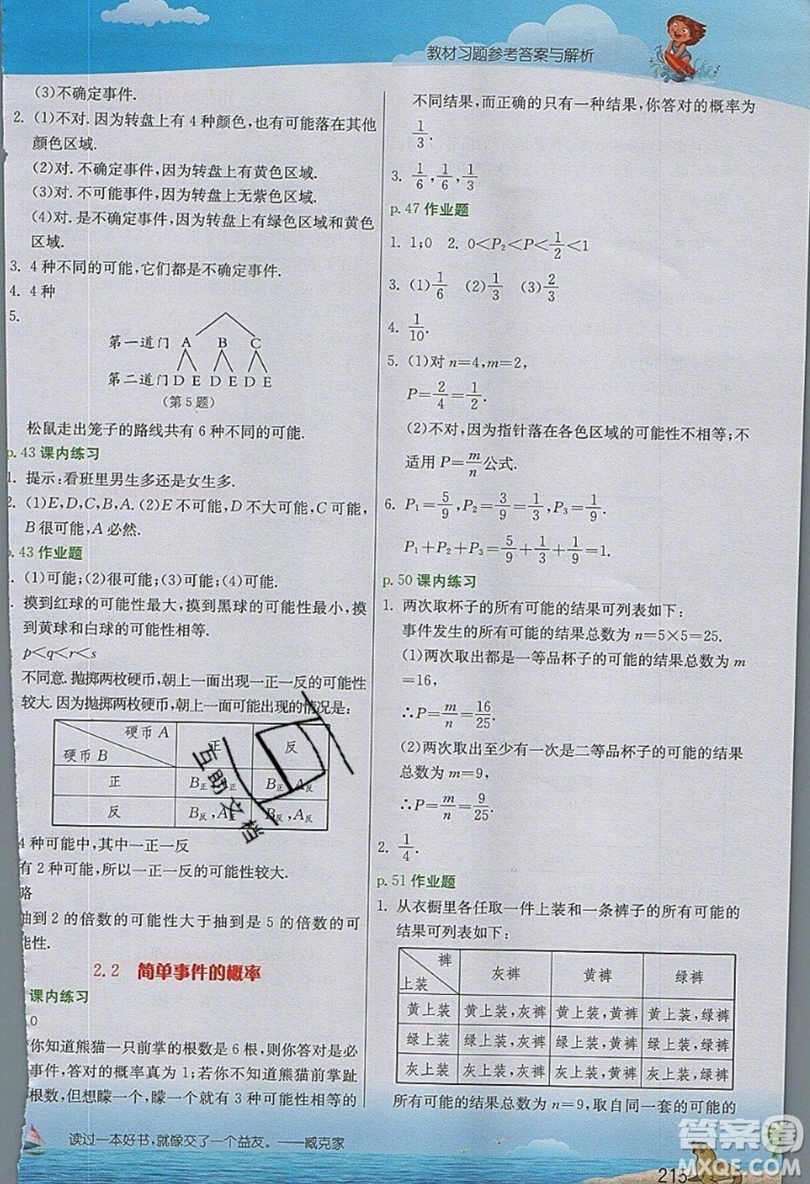 教材习题参考答案与解析
(3)不确定事件.
2. (1)不对. 因为转盘上有 4 种颜色,也有可能落在其他
颜色区域.
(2)对. 不确定事件,因为转盘上有黄色区域.
(3)对. 不可能事件,因为转盘上无紫色区域.
(4)对. 是不确定事件,因为转盘上有绿色区域和黄色
区域.
3. 4 种不同的可能,它们都是不确定事件.
4. 4 种
5.
第一道门 A B C
第二道门 D E D E D E
(第 5 题)
松鼠走出笼子的路线共有 6 种不同的可能.
p. 43 课内练习
1. 提示:看班里男生多还是女生多.
2. (1)E,D,C,B,A. (2)E 不可能,D 不大可能,C 可能,
B 很可能,A 必然.
p. 43 作业题
. (1)可能;(2)很可能;(3)不可能;(4)可能.
. 摸到红球的可能性最大,摸到黑球的可能性最小,摸
到黄球和白球的可能性相等.
p<q<r<s
不同意. 抛掷两枚硬币,朝上一面出现一正一反的可能性
较大. 因为抛掷两枚硬币,朝上一面可能出现的情况是:
硬币 A 正 反
硬币 B
正 B正,A正 B正,A反
反 B反,A正 B反,A反
4 种可能中,其中一正一反
有 2 种可能,所以一正一反的可能性较大.
略
抽到 2 的倍数的可能性大于抽到是 5 的倍数的可
能性.
2.2 简单事件的概率
课内练习
0
你知道熊猫一只前掌的根数是 6 根,则你答对是必
事件,答对的概率真为 1;若你不知道熊猫前掌趾
根数,但其中一个是正确的,矇一个就有 3 种等可能的
不同结果,而正确的只有一种结果,你答对的概率为
1/3.
3. 1/6,1/6,1/3
p. 47 作业题
1. 1;0 2. 0<P₂<P<1/2<1
3. (1)1/6 (2)1/3 (3)2/3
4. 1/10.
5. (1)对 n=4,m=2,
P=2/4=1/2.
(2)不对,因为指针落在各色区域的可能性不相等;不
适用 P=m/n公式.
6. P₁=5/9,P₂=3/9=1/3,P₃=1/9.
P₁+P₂+P₃=5/9+1/3+1/9=1.
p. 50 课内练习
1. 两次取杯子的所有可能的结果可列表如下:
事件发生的所有可能的结果总数为 n=5×5=25.
(1)两次取出都是一等品杯子的可能的结果总数为 m
=16,
∴P=m/n=16/25.
(2)两次取出至少有一次是二等品杯子的可能的结果
总数为 m=9,
∴P=m/n=9/25.
2. 1/4.
p. 51 作业题
1. 从衣橱里各任取一件上装和一条裤子的所有可能的
结果可列表如下:
裤 灰裤 黄裤 绿裤
上装
黄上装 黄上装,灰裤 黄上装,黄裤 黄上装,绿裤
绿上装 绿上装,灰裤 绿上装,黄裤 绿上装,绿裤
灰上装 灰上装,灰裤 灰上装,黄裤 灰上装,绿裤
所有可能的结果总数为 n=9,取自同一套的可能的
读过一本好书,就像交了一个益友。——臧克家
215
互助文档
答案圈
MXQE.COM